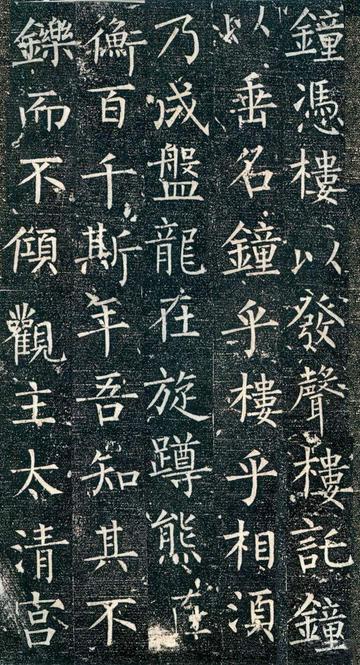 鐘憑樓以發聲樓託鐘
以垂名鐘乎樓乎相湏
乃成盤龍在旋蹲熊在
衡百千斯年吾知其不
鑠而不傾觀主太清宮